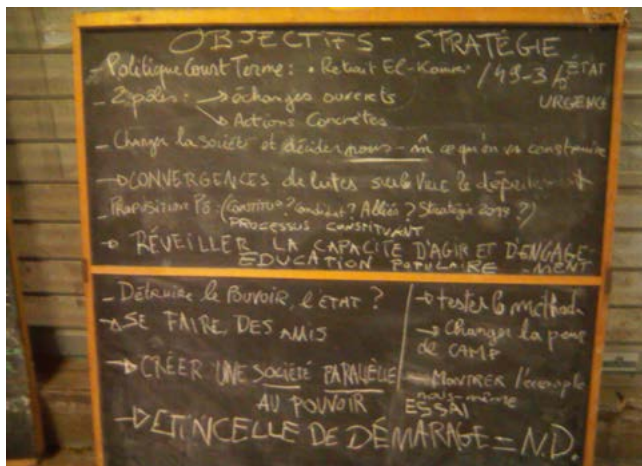 OBJECTIFS - STRATÉGIE
- Politique Court Terme: • Retrait El-Khomri / 49-3 / ÉTAT
URGENCE
- 2 pôles: → échanges ouverts
→ Actions Concrètes
- Changer la société et décider nous-m̂ ce qu'on va construire
→ CONVERGENCES de luttes sur la Ville le département
- PROPOSITION Pô: (Constitué? Candidat? Alliés? Stratégie ?)
PROCESSUS CONSTITUANT
RÉVEILLER LA CAPACITÉ D'AGIR ET D'ENGAGE-
EDUCATION POPULAIRE -MENT
- Détruire le Pouvoir, l'ÉTAT?
→ SE FAIRE DES AMIS
→ CRÉER UNE SOCIÉTÉ PARALLÈLE
AU POUVOIR
→ tester la méthode
→ Changer la peur
de CAMP
- MONTRER l'exemple
nous-même
ESSAI
→ ETINCELLE DE DÉMARAGE = N.D.